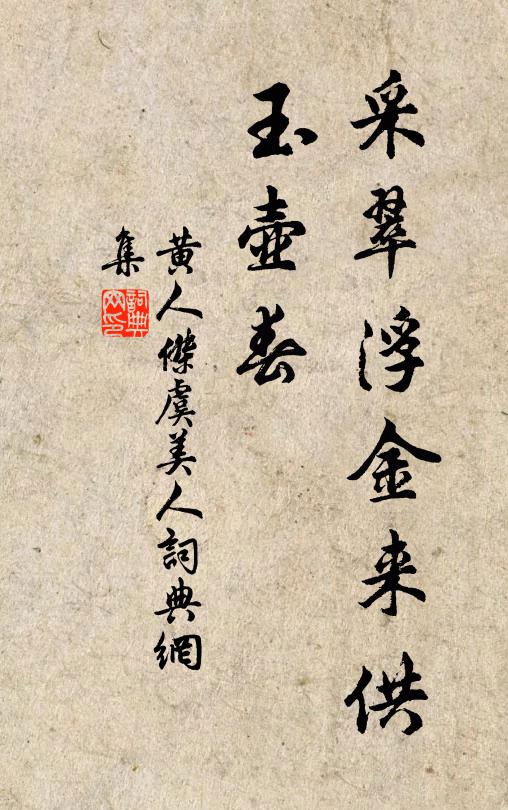 采翠浮金来供
玉壺春
黄人傑虞美人詞典網
集
詞典
网印